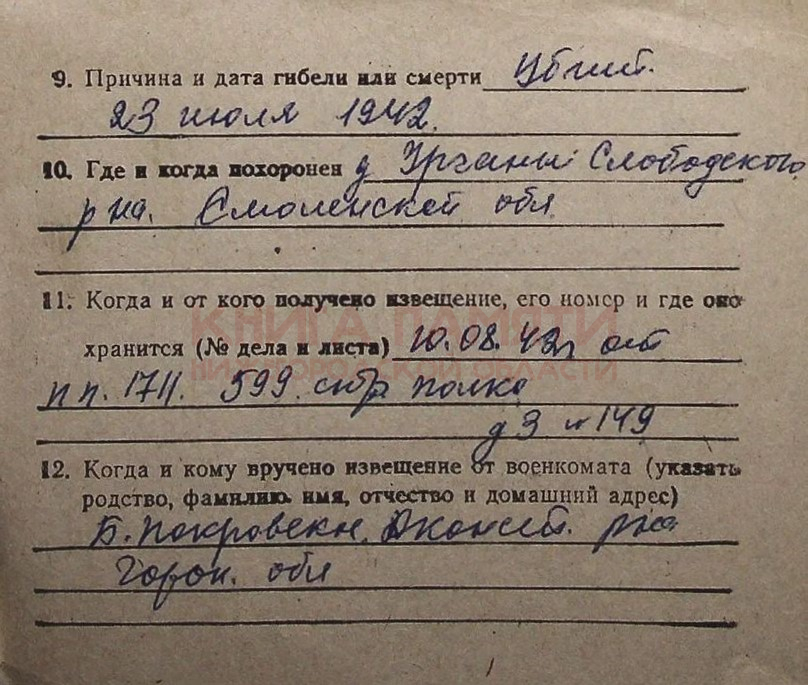 9. Причина и дата гибели или смерти Убит.
23 июля 1942.
10. Где и когда похоронен д Урганы Слободского
р на. Смоленской обл
11. Когда и от кого получено извещение, его номер и где оно
КНИГА ПАМЯТИ
хранится (№ дела и листа) 10.08.42г от
НИЖЕГОРОДСКОЙ ОБЛАСТИ
п п. 1711. 599. стр полка
д 3 л 149
12. Когда и кому вручено извещение от военкомата (указать
родство, фамилию, имя, отчество и домашний адрес)
Б. Покровское. р на
Горьк. обл